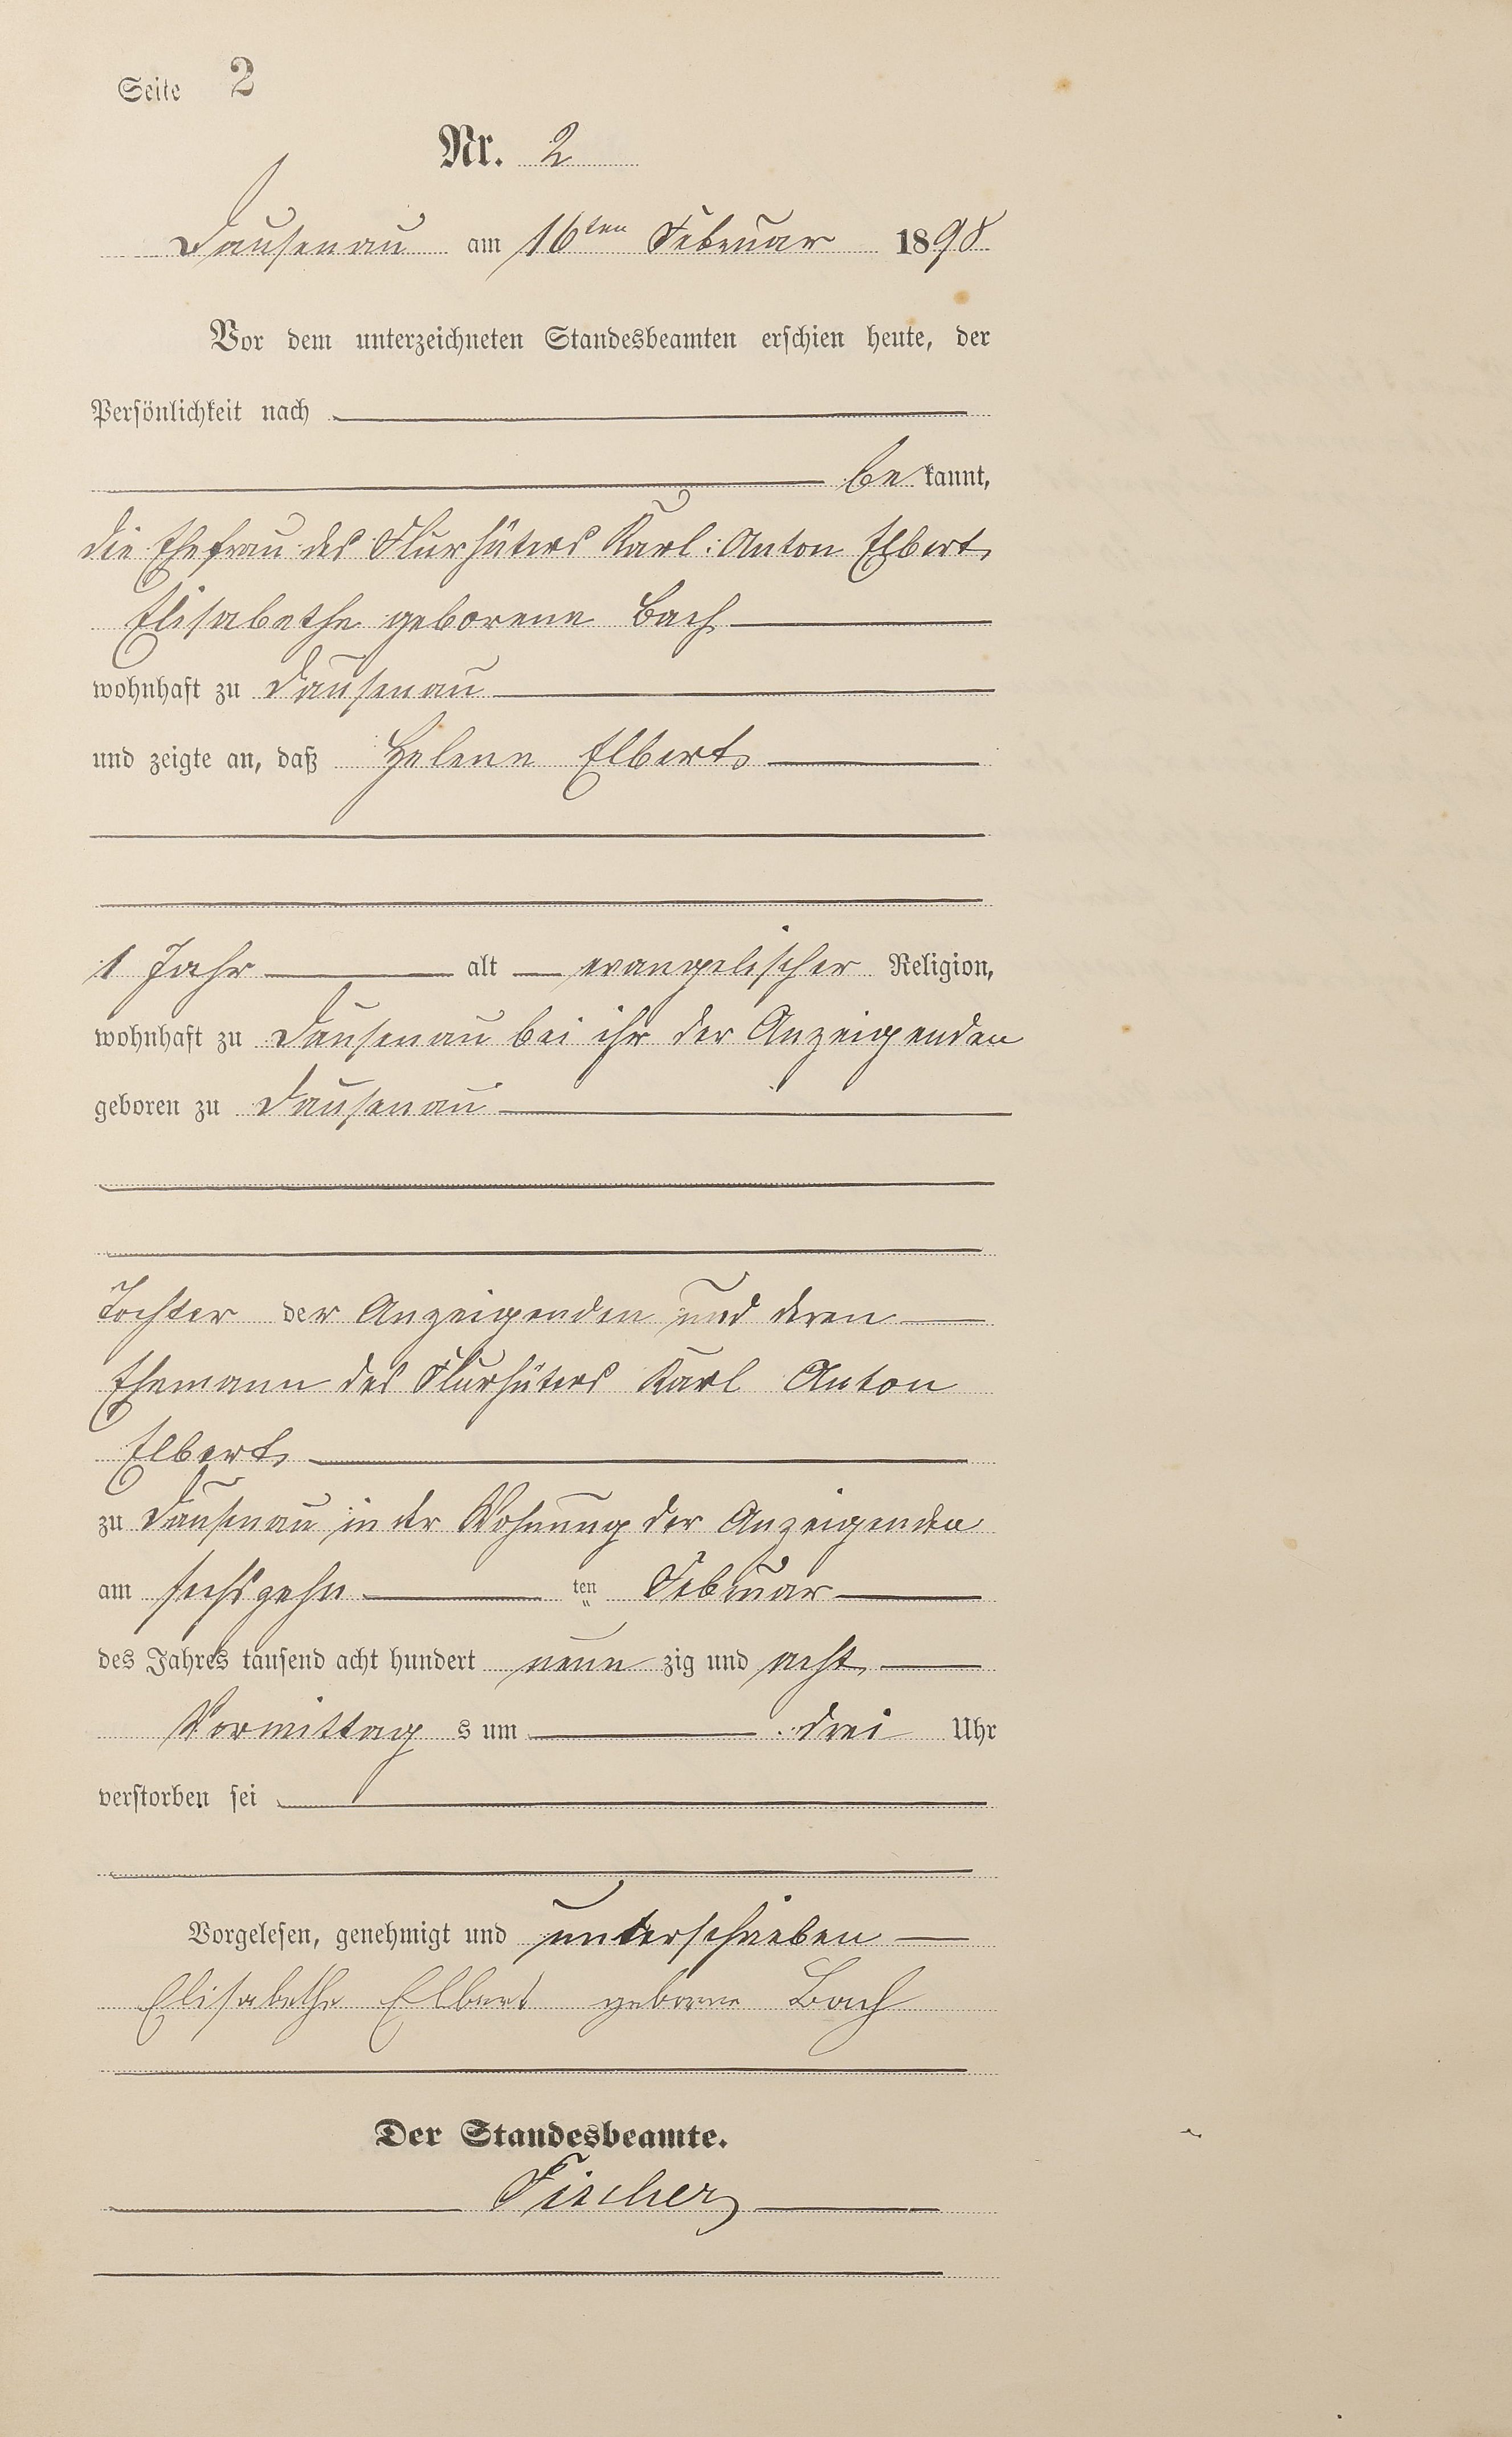 Seite 2
Nr. 2
Dausenau am 16ten Februar 1898
Vor dem unterzeichneten Standesbeamten erschien heute, der
Persönlichkeit nach
be kannt,
die Ehefrau des Flurhüters Karl Anton Elbert,
Elisabethe geborene Bach
wohnhaft zu Dausenau
und zeigte an, daß Helene Elbert,
1 Jahr alt evangelischer Religion,
wohnhaft zu Dausenau bei ihr der Anzeigenden
geboren zu Dausenau
Tochter der Anzeigenden und deren
Ehemann des Flurhüters Karl Anton
Elbert,
zu Dausenau in der Wohnung der Anzeigenden
am sechszehn ten Februar
des Jahres tausend acht hundert neun zig und acht,
Vormittag s um drei Uhr
verstorben sei
Vorgelesen, genehmigt und unterschrieben
Elisabethe Elbert geborne Bach
Der Standesbeamte.
Fischer